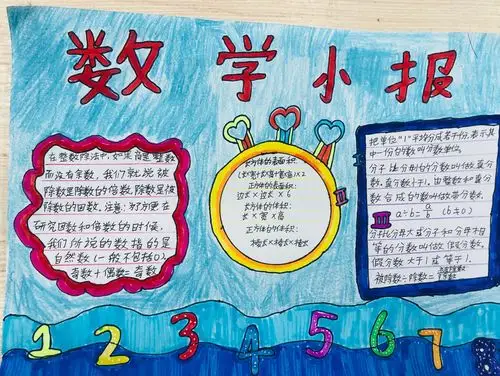 数学小报
在整数除法中,如果商是整数
而没有余数,我们就说被
除数是除数的倍数,除数是被
除数的因数。注意:为了方便在
研究因数和倍数的时候,
我们所说的数指的是
自然数(一般不包括0)。
奇数+偶数=奇数
长方体的表面积:
(长×宽+长×高+宽×高)×2
正方体的表面积:
边长×边长×6
长方体的体积:
长×宽×高
正方体的体积:
棱长×棱长×棱长
把单位"1"平均分成若干份,表示其
中一份的数叫分数单位。
分子比分母小的分数叫做真分
数。真分数小于1。由整数和真分
数合成的数叫做带分数。
a÷b=a/b (b≠0)
分子比分母大或分子和分母相
等的分数叫做假分数。
假分数大于1或等于1.
被除数÷除数=
1 2 3 4 5 6 7